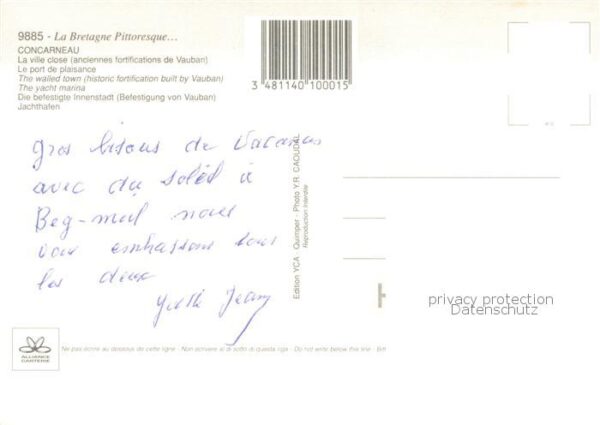 9885 - La Bretagne Pittoresque...
CONCARNEAU
La ville close (anciennes fortifications de Vauban)
Le port de plaisance
The walled town (historic fortification built by Vauban)
The yacht marina
Die befestigte Innenstadt (Befestigung von Vauban)
Jachthafen
3 481140 100015
gros bisous de Vacances
avec du soleil à
Beg-meil nous
vous embrassons tous
les deux
Jean
Edition YCA - Quimper - Photo Y.R. CAOUDAL
Reproduction interdite
privacy protection
Datenschutz
ALLIANCE
CARTERIE
Ne pas écrire au dessous de cette ligne - Non scrivere al di sotto di questa riga - Do not write below this line - Bitt